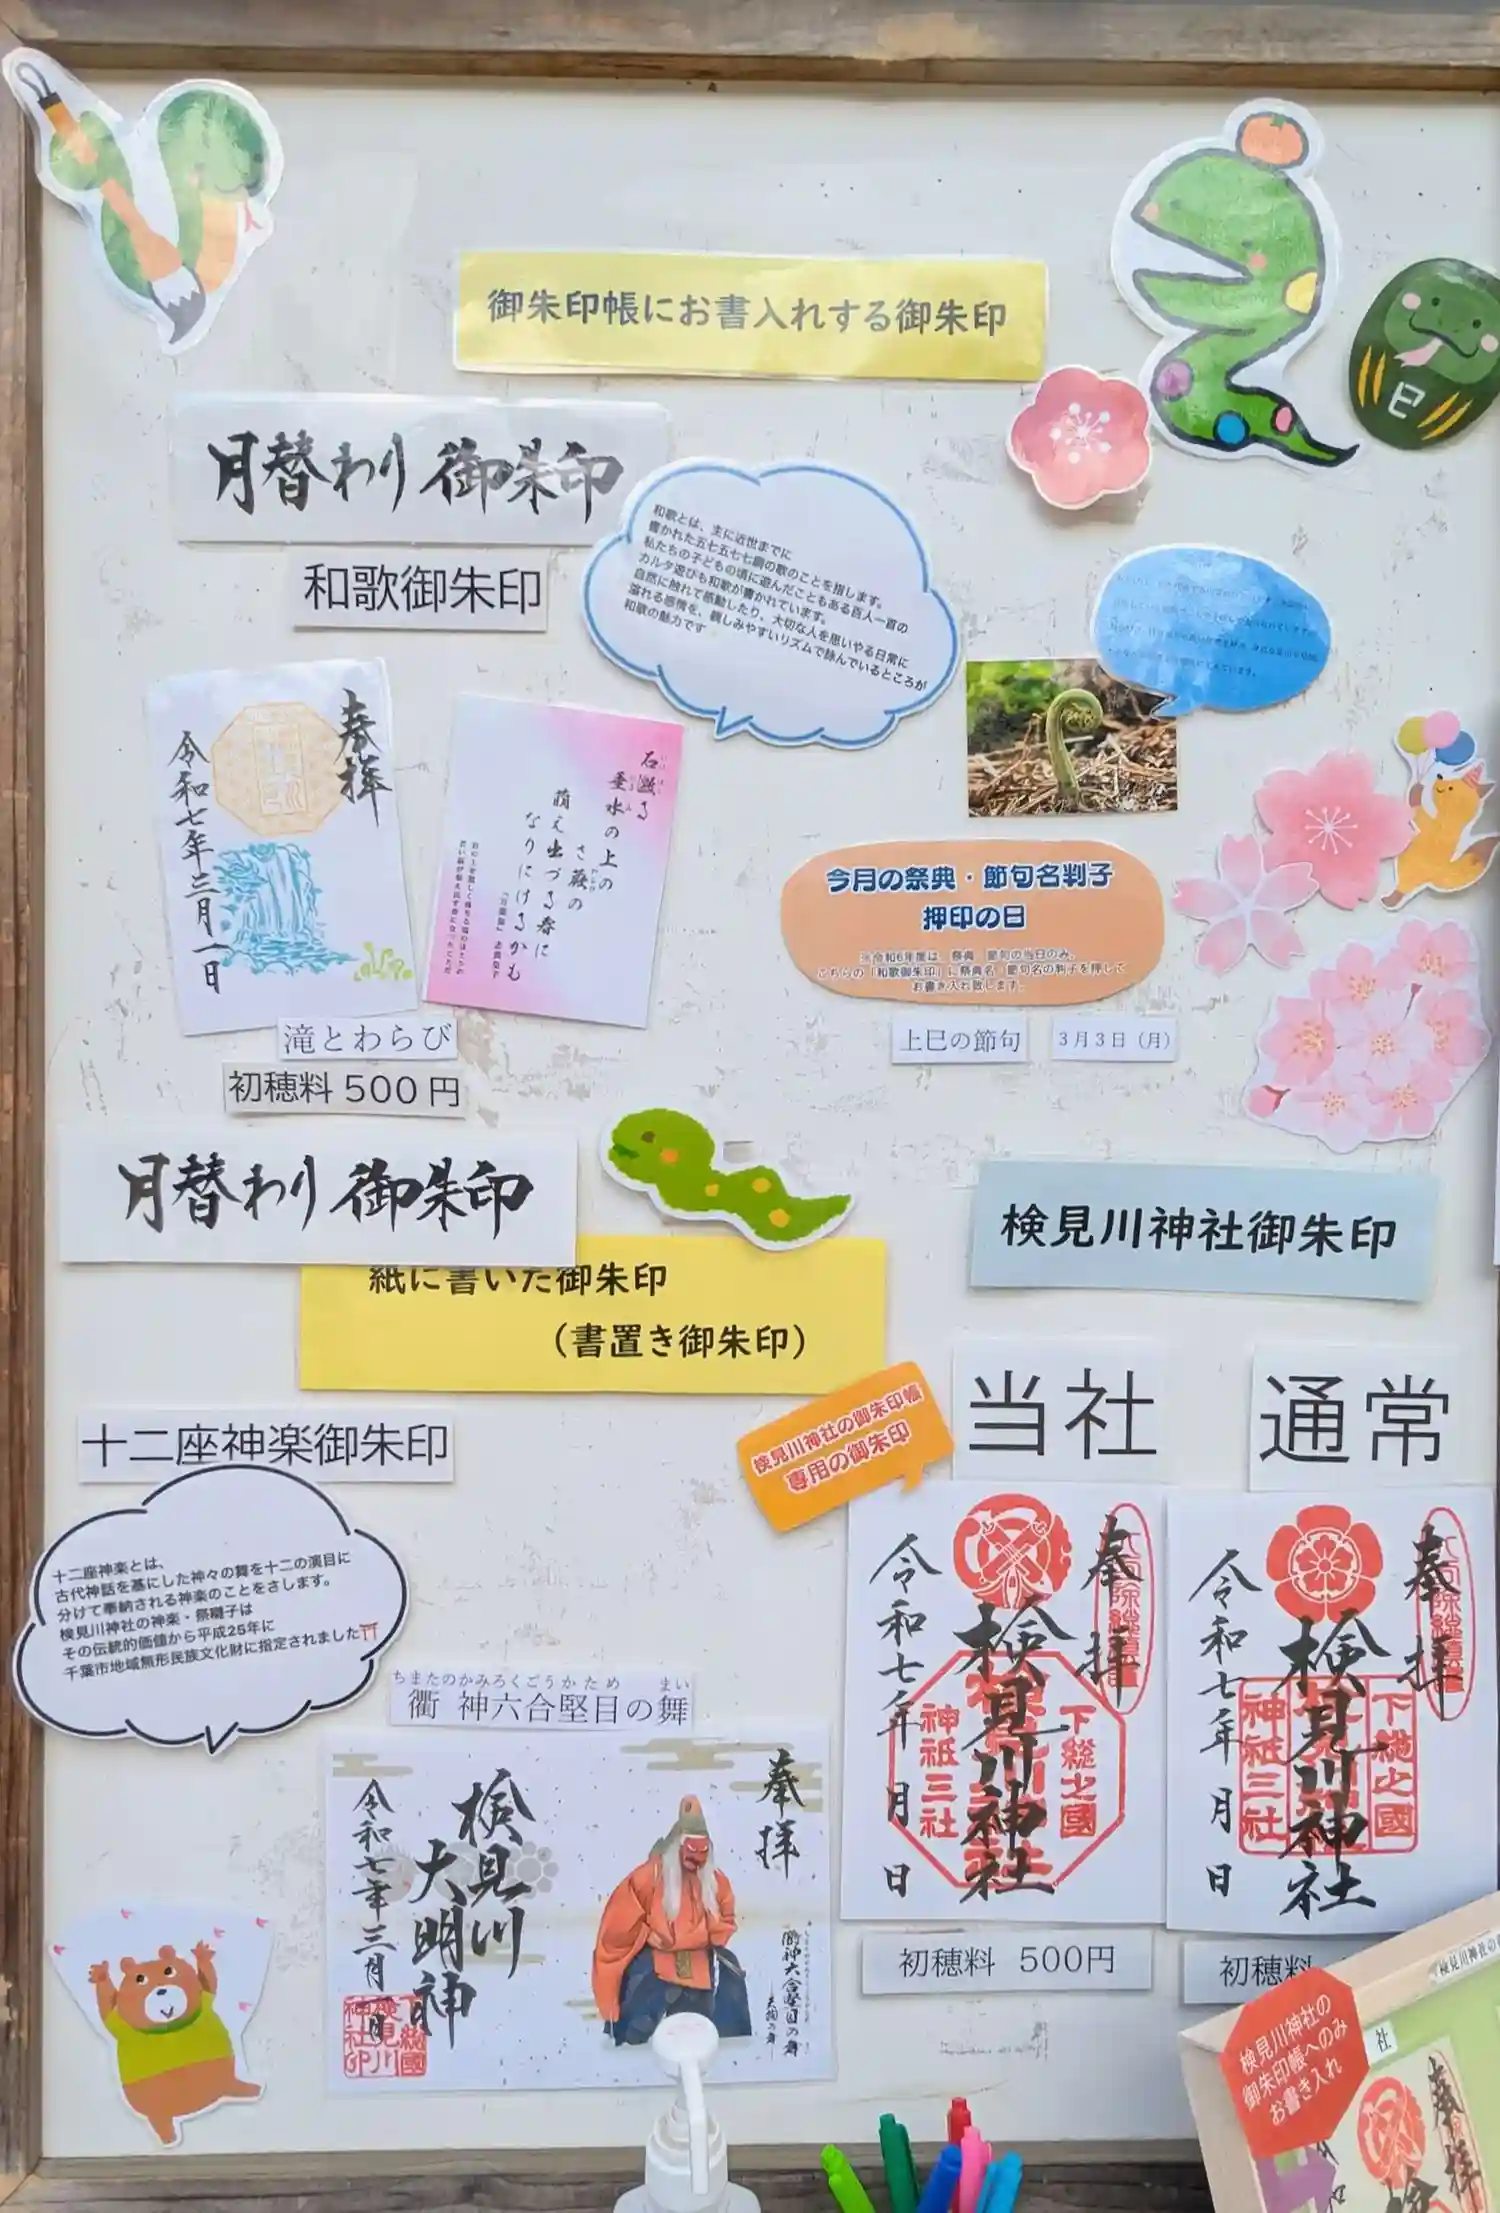 御朱印帳にお書入れする御朱印
巳
月替わり御朱印
和歌御朱印
和歌とは、主に近世までに
書かれた五七五七七調の歌のことを指します。
私たちの子どもの頃に遊んだこともある百人一首の
カルタ遊びも和歌が書かれています。
自然に触れて感動したり、大切な人を思いやる日常に
溢れる感情を、親しみやすいリズムで詠んでいるところが
和歌の魅力です
奉拝
令和七年三月一日
石激る
垂水の上の
さ蕨の
萌え出づる春に
なりにけるかも
滝とわらび
初穂料 500円
今月の祭典・節句名判子
押印の日
※令和6年度は、祭典 節句の当日のみ、
こちらの「和歌御朱印」に祭典名 節句名の判子を押して
お書き入れ致します。
上巳の節句
3月3日(月)
月替わり御朱印
紙に書いた御朱印
(書置き御朱印)
十二座神楽御朱印
十二座神楽とは、
古代神話を基にした神々の舞を十二の演目に
分けて奉納される神楽のことをさします。
検見川神社の神楽・祭囃子は
その伝統的価値から平成25年に
千葉市地域無形民族文化財に指定されました⛩
ちまたのかみろくごうかため まい
衢 神六合堅目の舞
奉拝
衢神六合堅目の舞
天狗の舞
検見川
大明神
令和七年三月一日
下総國
検見川
神社印
検見川神社御朱印
検見川神社の御朱印帳
専用の御朱印
当社
奉拝
検見川神社
下総之國
神祇三社
令和七年 月 日
初穂料 500円
通常
奉拝
検見川神社
下総之國
神祇三社
令和七年 月 日
初穂料
検見川神社の
御朱印帳へのみ
お書き入れ
社
奉拝